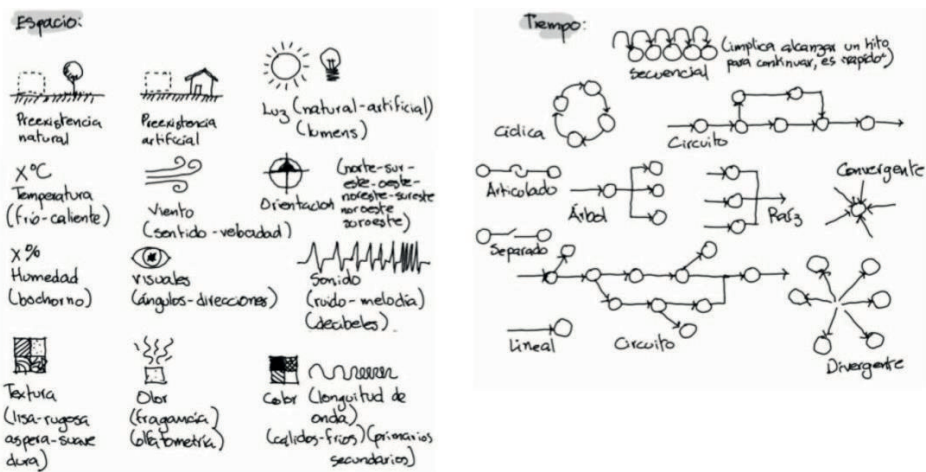 Espacio:
Preexistencia
natural
Preexistencia
artificial
Luz (natural-artificial)
(lumens)
X°C
Temperatura
(frío-caliente)
Viento
(sentido-velocidad)
Orientación
(norte-sur-
este-oeste-
noreste-sureste
noroeste
soroeste)
X%
Humedad
(bochorno)
visuales
(ángulos-direcciones)
Sonido
(ruido-melodía)
(decibeles)
Textura
(lisa-rugosa
aspera-suave
dura)
Olor
(fragancia)
(olfatometría)
Color (longuitud de
onda)
(calidos-fríos) (primarios
secundarios)
Tiempo:
secuencial
(implica alcanzar un hito
para continuar, es "rapido")
Cíclica
Circuito
Articulado
Árbol
Raíz
Convergente
Separado
Lineal
Circuito
Divergente